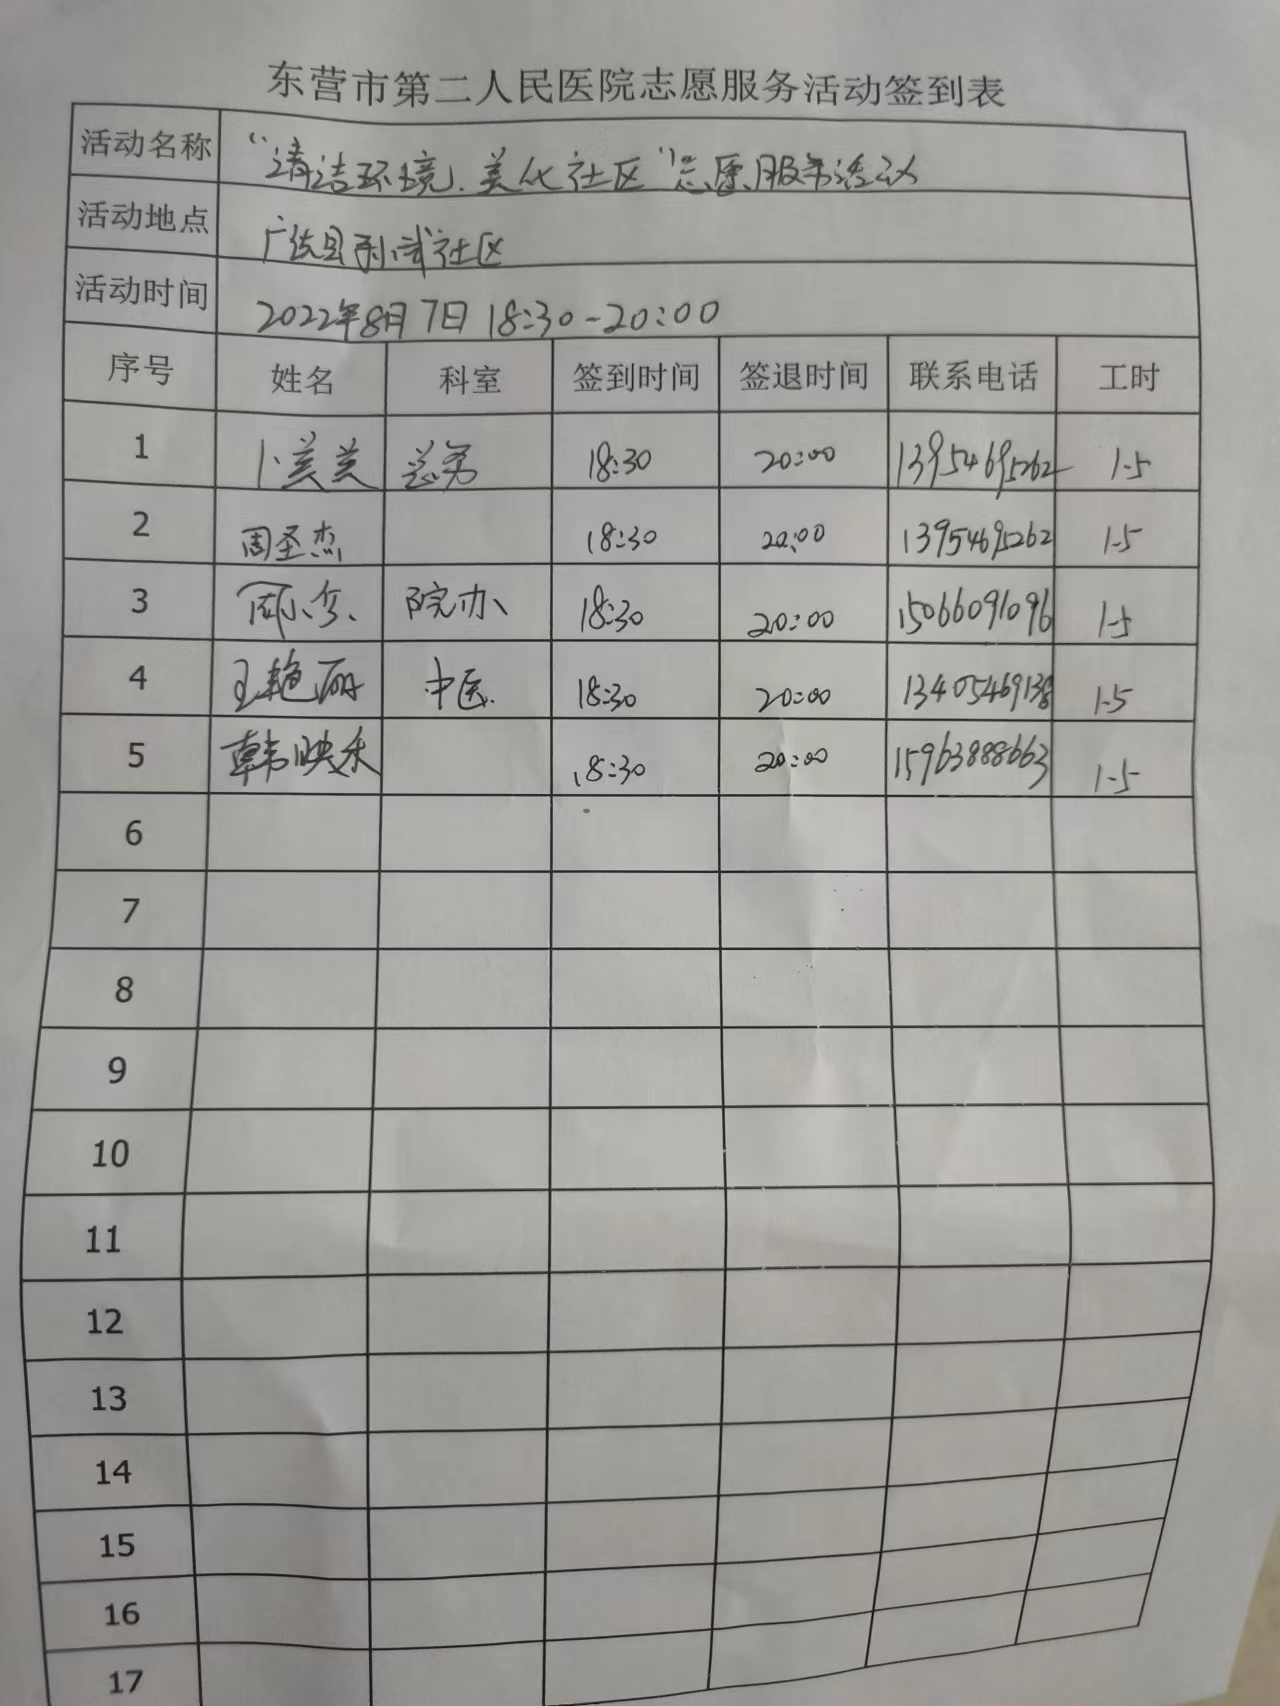 东营市第二人民医院志愿服务活动签到表
活动名称 “清洁环境、美化社区”志愿服务活动
活动地点 广饶县孙武社区
活动时间 2022年8月7日 18:30-20:00
序号 姓名 科室 签到时间 签退时间 联系电话 工时
1 卜美美 总务 18:30 20:00 13954695262 1.5
2 周圣杰 18:30 20:00 13954695262 1.5
3 周小 院办 18:30 20:00 15066091096 1.5
4 王艳丽 中医 18:30 20:00 13405469138 1.5
5 韩映 18:30 20:00 15963888663 1.5
6
7
8
9
10
11
12
13
14
15
16
17